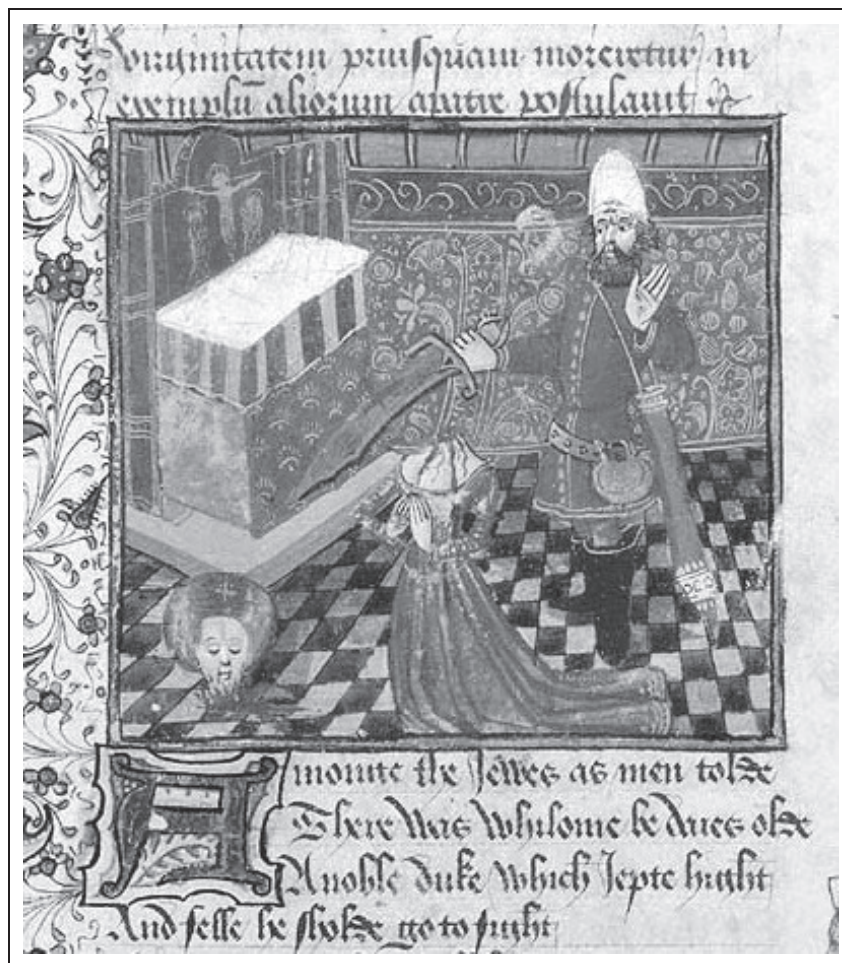 virginitatem priusquam moreretur in
exemplū aliorum
monte the Jewes as men tolde
There was whilome be daies olde
A noble duke which Jepte hight
And felle he sholde go to fight